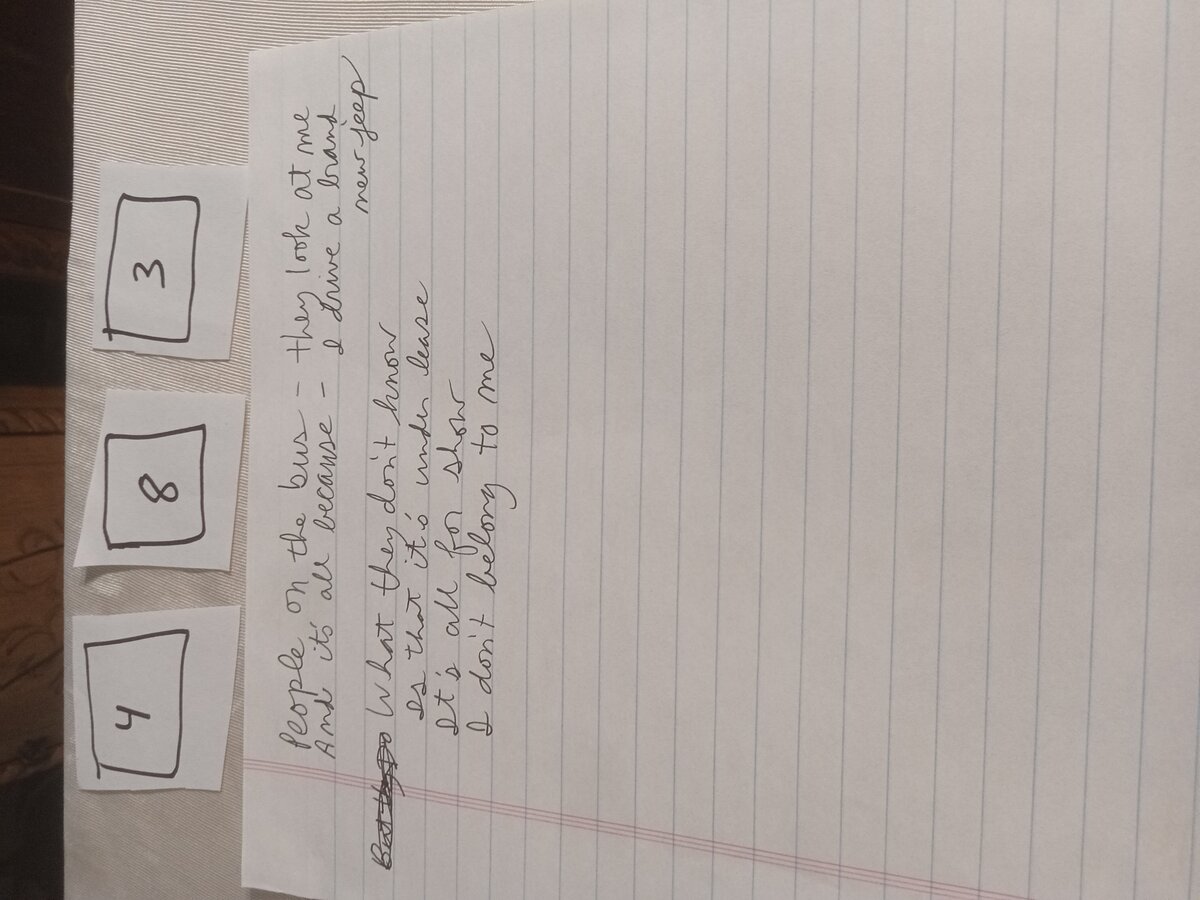 4 8 3
People on the bus - they look at me
And it's all because - I drive a brand
new jeep
What they don't know
Is that it's under lease
It's all for show
I don't belong to me